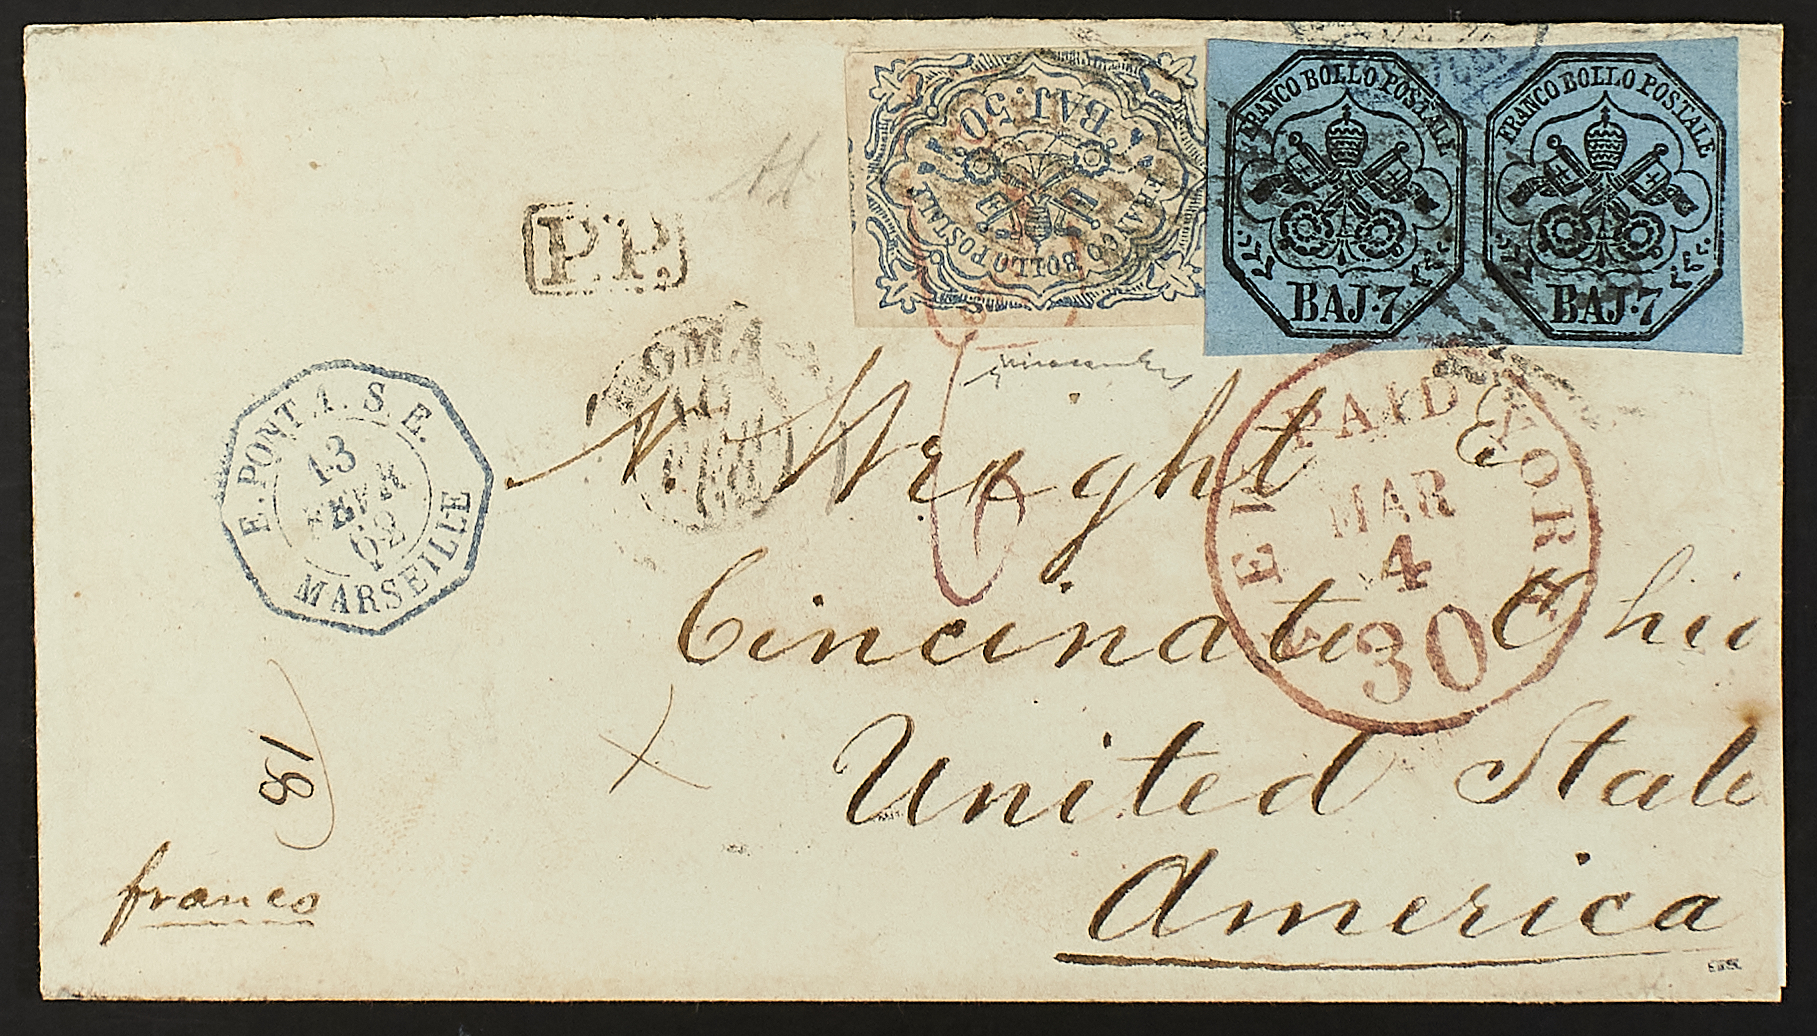 BAJ:50
FRANCO BOLLO POSTALE
FRANCO BOLLO POSTALE
BAJ·7
FRANCO BOLLO POSTALE
BAJ·7
P.P.
ROMA
E. PONT. 1. S. E.
13
62
MARSEILLE
PAID
YORK
MAR
4
30
N. Wright E
Cincinati Ohio
United State
America
81
franco